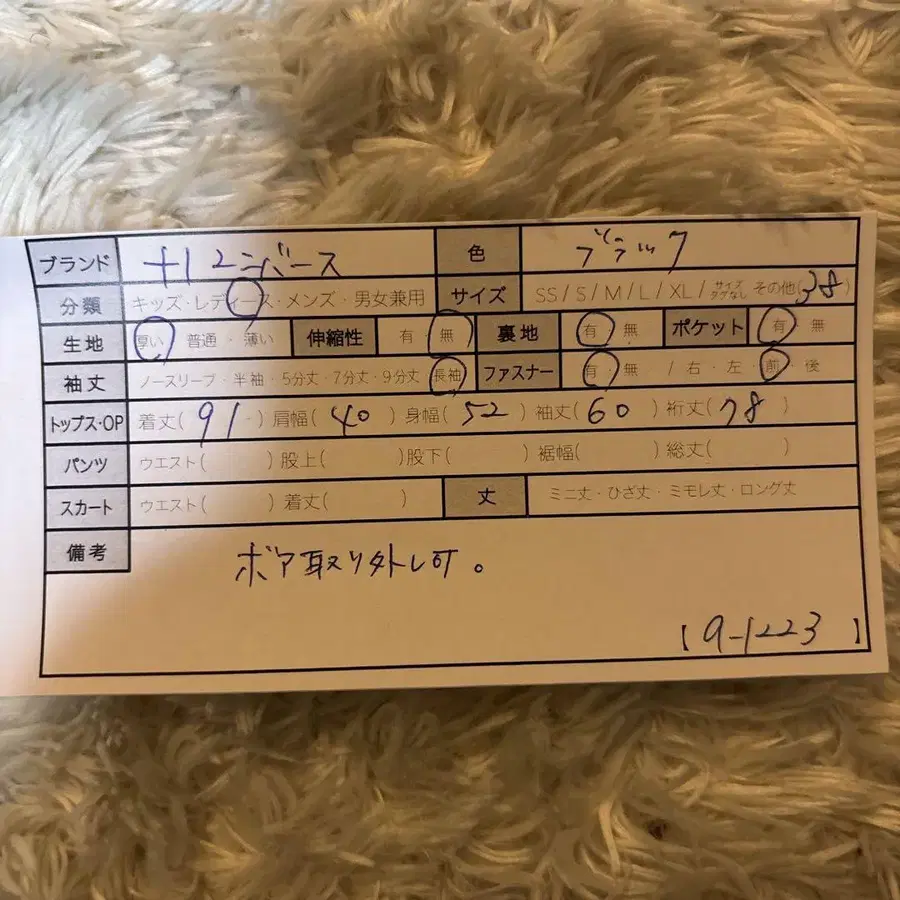 ブランド +12ニバース 色 ブラック
分類 キッズ・レディース・メンズ・男女兼用 サイズ SS / S / M / L / XL / サイズタグなし その他(38)
生地 厚い・普通・薄い 伸縮性 有・無 裏地 有・無 ポケット 有・無
袖丈 ノースリーブ・半袖・5分丈・7分丈・9分丈・長袖 ファスナー 有・無 / 右・左・前・後
トップス・OP 着丈(91) 肩幅(40) 身幅(52) 袖丈(60) 裄丈(78)
パンツ ウエスト( ) 股上( ) 股下( ) 裾幅( ) 総丈( )
スカート ウエスト( ) 着丈( ) 丈 ミニ丈・ひざ丈・ミモレ丈・ロング丈
備考 ボア取り外し可。
【9-1223】